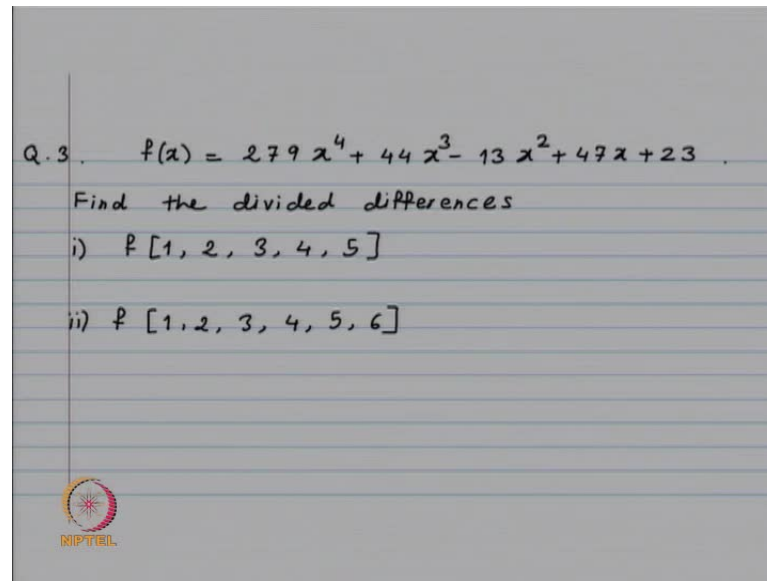 Q.3. f(x) = 279 x⁴ + 44 x³ - 13 x² + 47x + 23 .
Find the divided differences
i) f [1, 2, 3, 4, 5]
ii) f [1, 2, 3, 4, 5, 6]
NPTEL